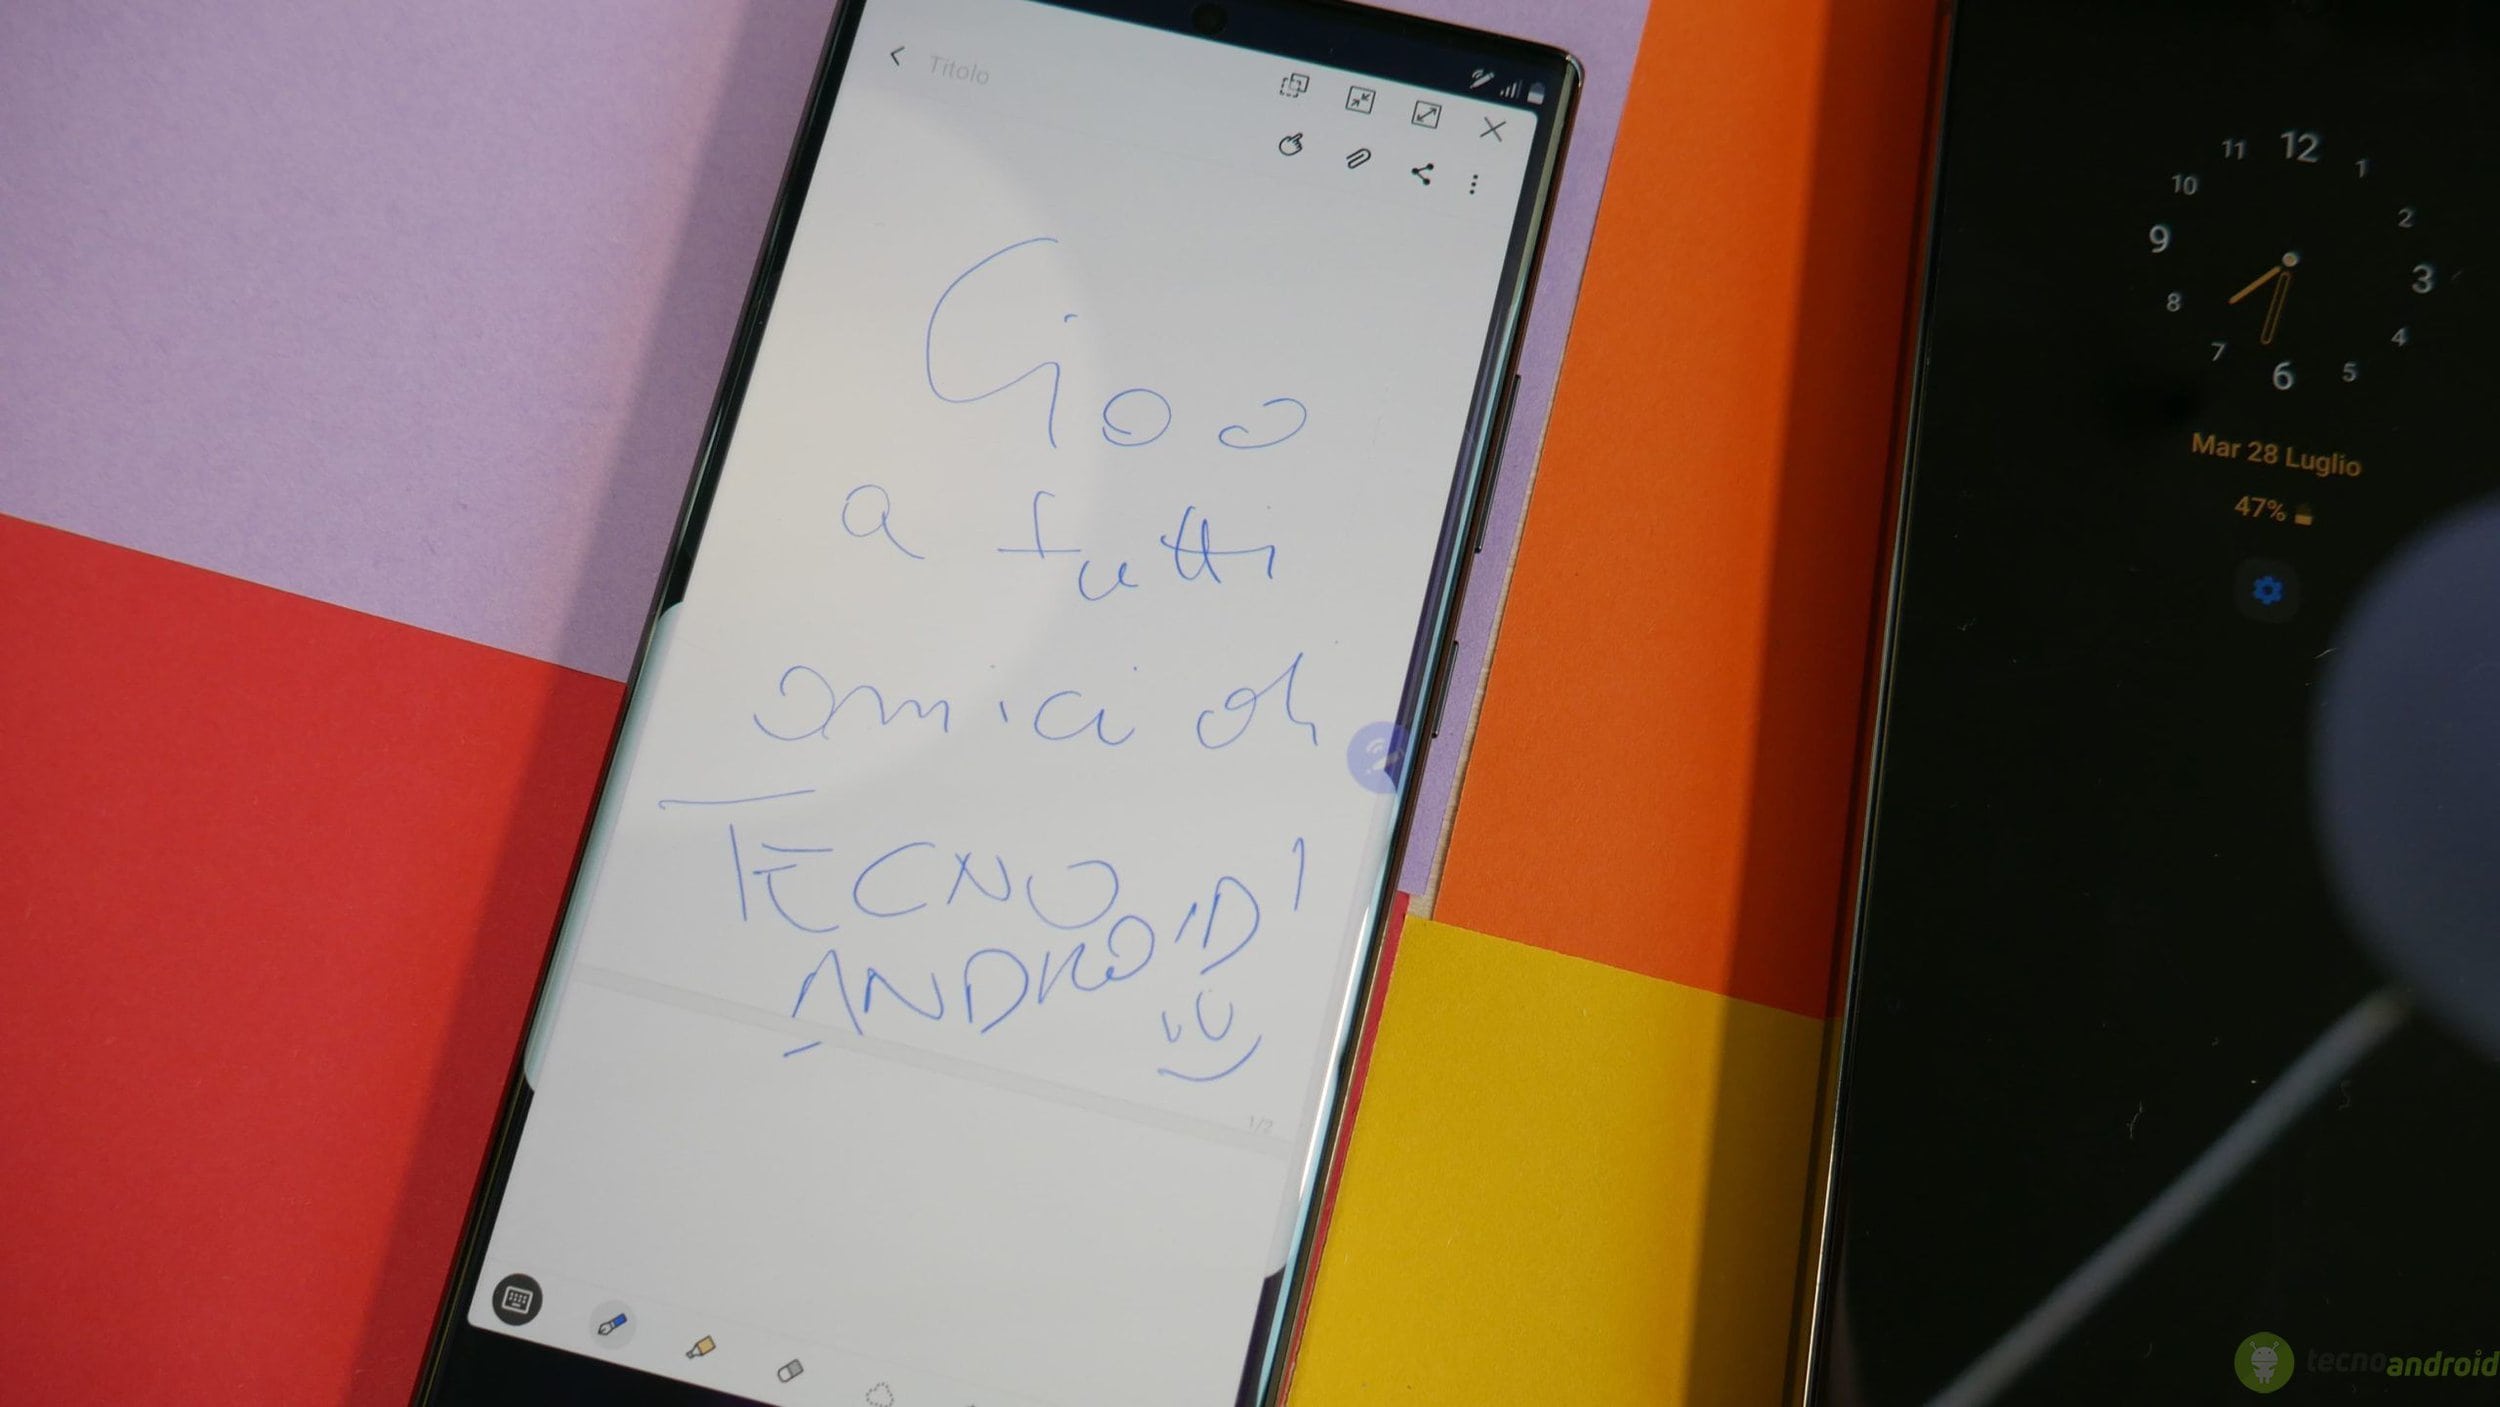 Titolo
Ciao
a tutti
amici di
TECNO
ANDROID!
1/2
12
1
2
3
4
5
6
7
8
9
10
11
Mar 28 Luglio
47%
tecnoandroid